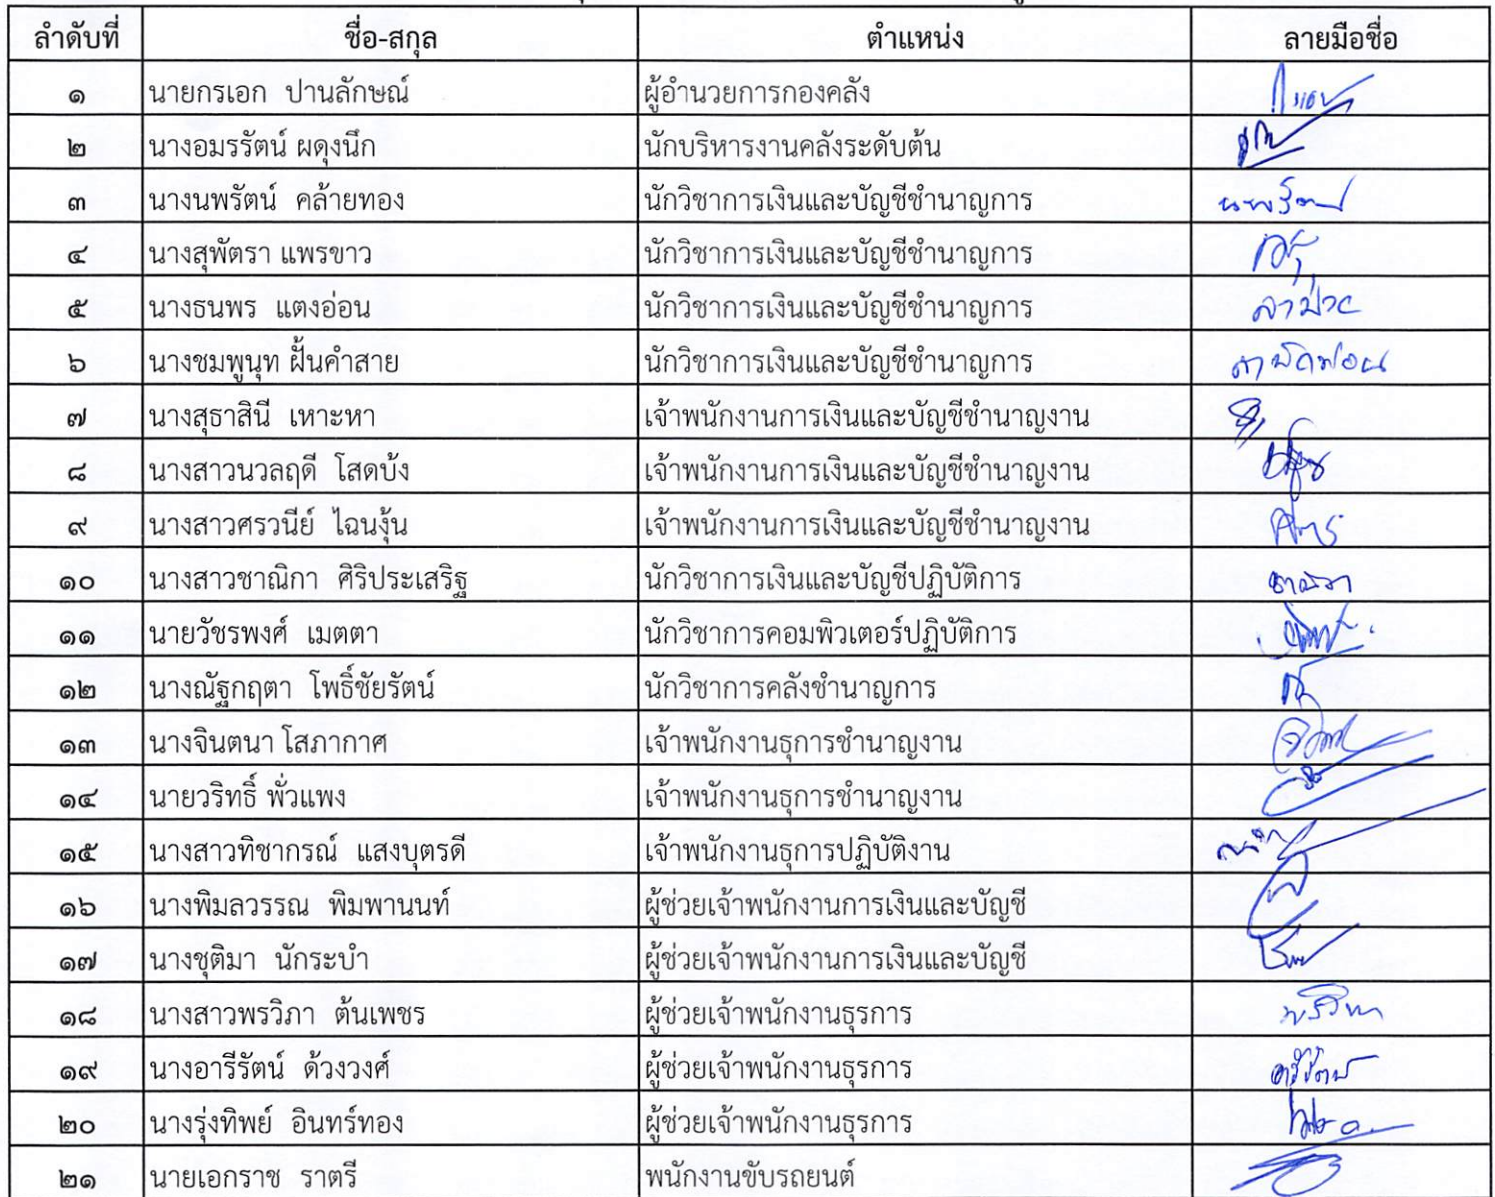 ลำดับที่ ชื่อ-สกุล ตำแหน่ง ลายมือชื่อ
๑ นายกรเอก ปานลักษณ์ ผู้อำนวยการกองคลัง
๒ นางอมรรัตน์ ผดุงนึก นักบริหารงานคลังระดับต้น
๓ นางนพรัตน์ คล้ายทอง นักวิชาการเงินและบัญชีชำนาญการ นพรัตน์
๔ นางสุพัตรา แพรขาว นักวิชาการเงินและบัญชีชำนาญการ
๕ นางธนพร แตงอ่อน นักวิชาการเงินและบัญชีชำนาญการ ลาป่วย
๖ นางชมพูนุท ฝั้นคำสาย นักวิชาการเงินและบัญชีชำนาญการ ลาพักผ่อน
๗ นางสุธาสินี เหาะหา เจ้าพนักงานการเงินและบัญชีชำนาญงาน
๘ นางสาวนวลฤดี โสดบ้ง เจ้าพนักงานการเงินและบัญชีชำนาญงาน
๙ นางสาวศรวนีย์ ไฉนงุ้น เจ้าพนักงานการเงินและบัญชีชำนาญงาน
๑๐ นางสาวชาณิกา ศิริประเสริฐ นักวิชาการเงินและบัญชีปฏิบัติการ ชาณิกา
๑๑ นายวัชรพงศ์ เมตตา นักวิชาการคอมพิวเตอร์ปฏิบัติการ
๑๒ นางณัฐกฤตา โพธิ์ชัยรัตน์ นักวิชาการคลังชำนาญการ
๑๓ นางจินตนา โสภากาศ เจ้าพนักงานธุการชำนาญงาน
๑๔ นายวริทธิ์ พั่วแพง เจ้าพนักงานธุการชำนาญงาน
๑๕ นางสาวทิชากรณ์ แสงบุตรดี เจ้าพนักงานธุการปฏิบัติงาน
๑๖ นางพิมลวรรณ พิมพานนท์ ผู้ช่วยเจ้าพนักงานการเงินและบัญชี
๑๗ นางชุติมา นักระบำ ผู้ช่วยเจ้าพนักงานการเงินและบัญชี
๑๘ นางสาวพรวิภา ต้นเพชร ผู้ช่วยเจ้าพนักงานธุรการ พรวิภา
๑๙ นางอารีรัตน์ ด้วงวงศ์ ผู้ช่วยเจ้าพนักงานธุรการ อารีรัตน์
๒๐ นางรุ่งทิพย์ อินทร์ทอง ผู้ช่วยเจ้าพนักงานธุรการ
๒๑ นายเอกราช ราตรี พนักงานขับรถยนต์